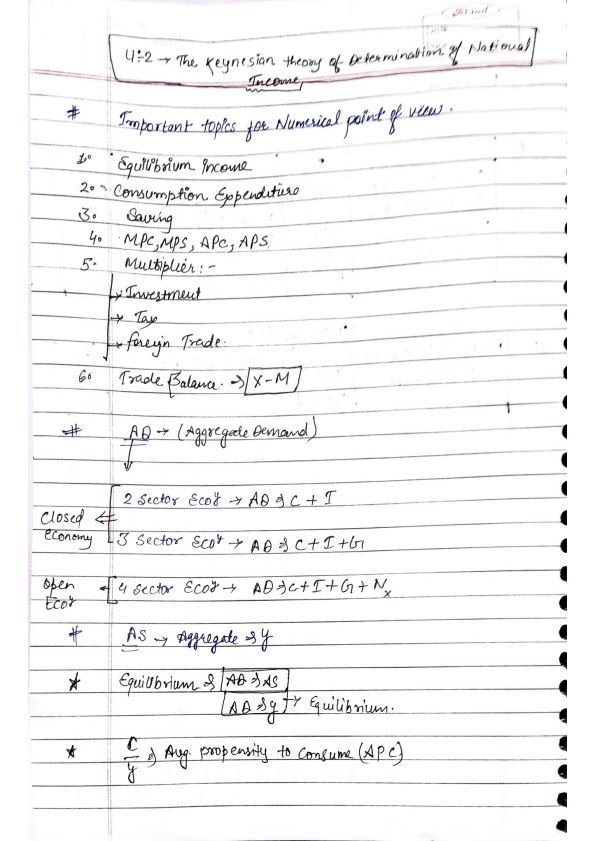 4:2 → The Keynesian theory of Determination of National
Income
# Important topics for Numerical point of view.
1. Equilibrium income
2. Consumption Expenditure
3. Saving
4. MPC, MPS, APC, APS.
5. Multiplier :-
→ Investment
→ Tax
→ foreign Trade.
6. Trade Balance. ⇒ X-M
# AD → (Aggregate Demand)
2 Sector Eco𝑦 → AD ⇒ C + I
Closed economy ⇐
3 Sector Eco𝑦 → AD ⇒ C+I+G
Open Eco𝑦 ← 4 Sector Eco𝑦 → AD ⇒ C+I+G+Nx
# AS → Aggregate ⇒ y
★ Equilibrium ⇒ AD ⇒ AS
AD ⇒ y → Equilibrium.
★ C/y ⇒ Avg. propensity to Consume (APC)